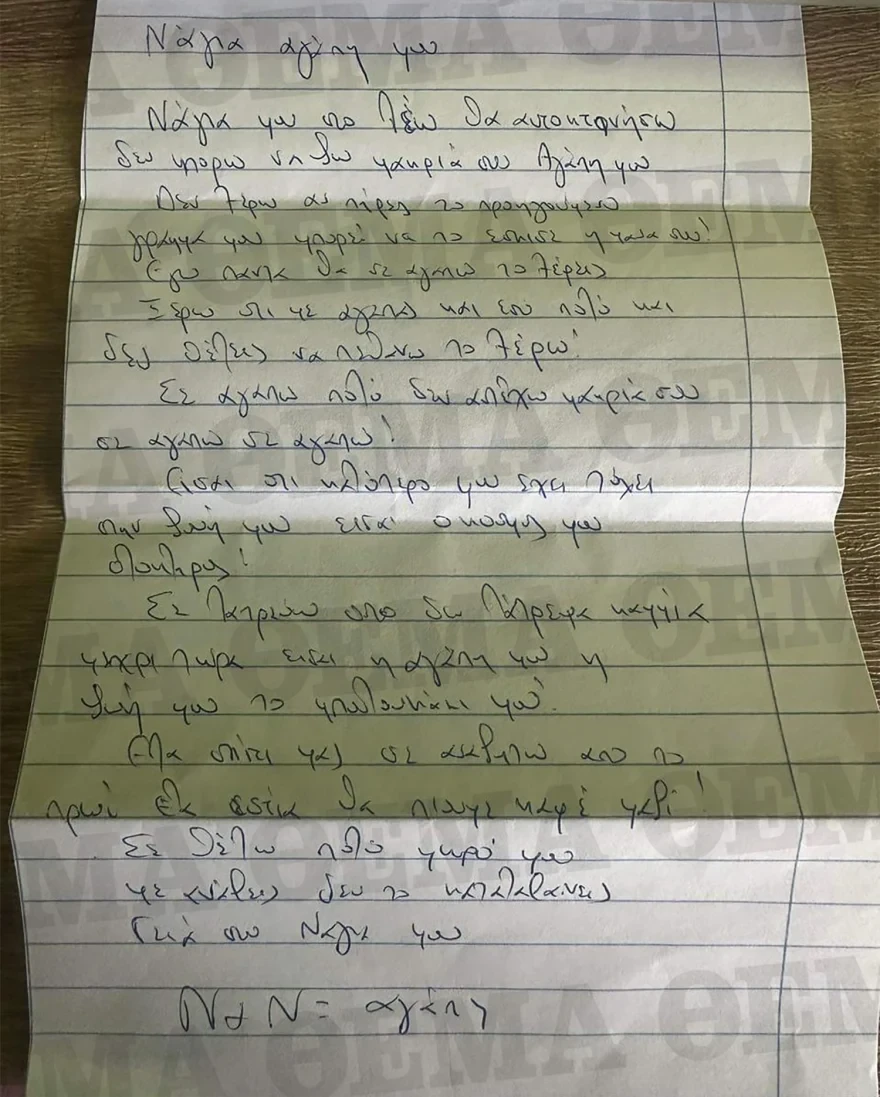 Νάγια αγάπη μου
Νάγια μου στο λέω θα αυτοκτονήσω
δεν μπορω να ζω μακριά σου Αγάπη μου
Δεν ξερω αν πηρες το προηγουμενο
γραμμα μου μπορεί να το εσκισε η μαμα σου!
Εγω παντα θα σε αγαπω το ξέρεις
Ξέρω οτι με αγαπας και εσυ πολύ και
δεν θέλεις να πεθανω το ξέρω!
Σε αγαπω πολύ δεν αντέχω μακριά σου
σε αγαπω σε αγαπω!
Εισαι οτι καλύτερο μου εχει τύχει
στην ζωή μου εισαι ο κοσμος μου
ολοκληρος!
Σε λατρεύω οπο δεν λάτρεψα καμμία
μεχρι τωρα εισαι η αγάπη μου η
ζωή μου το μπουμπουνακι μου!
Ελα σπίτι μας σε περιμενω απο το
πρωί ελα εστια θα πιουμε καφέ μαζί!
Σε θέλω πολύ μωρό μου
με αναβεις δεν το καταλαβαινεις
Γειά σου Νάγια μου
Ν + Ν = αγάπη
ΘΕΜΑ ΘΕΜΑ